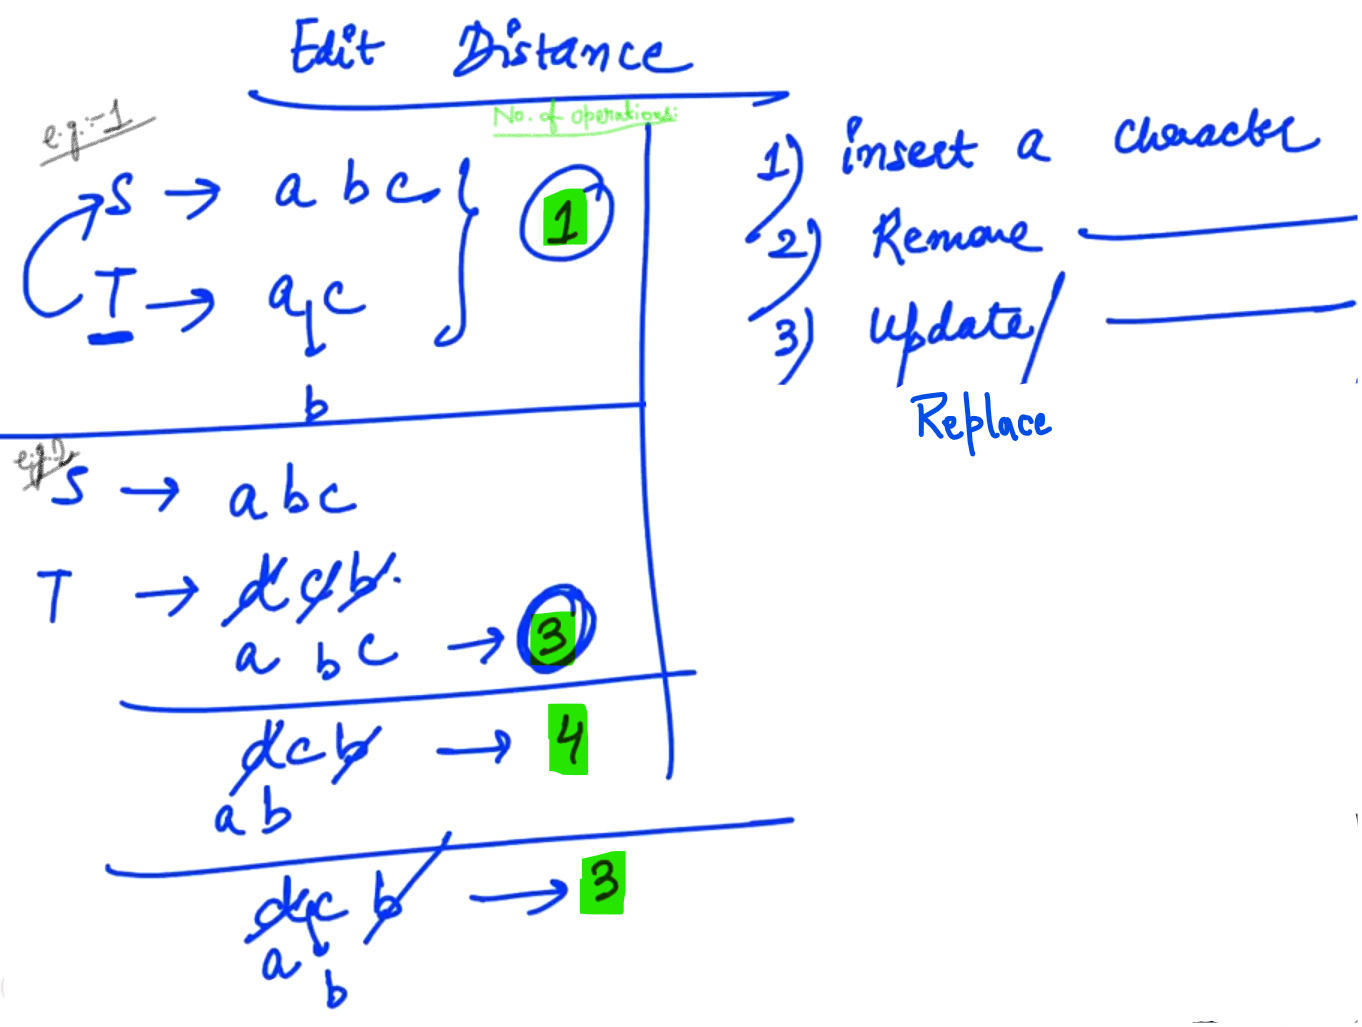 Edit Distance
No. of operations:
e.g:-1
S → a b c
1
T → a c
b
e.g:-2
S → a b c
T → d c b
a b c → 3
d c b → 4
a b
d c b → 3
a
b
1) insert a character
2) Remove
3) Update/
Replace